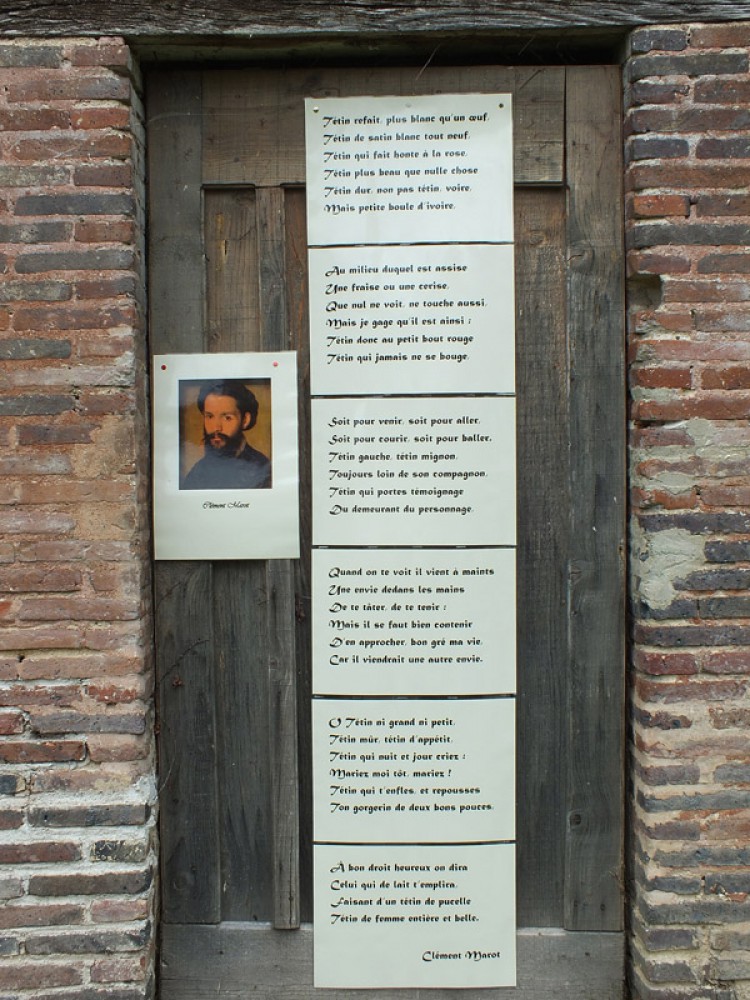 Tétin refait, plus blanc qu'un œuf,
Tétin de satin blanc tout neuf,
Tétin qui fait honte à la rose,
Tétin plus beau que nulle chose
Tétin dur, non pas tétin, voire,
Mais petite boule d'ivoire,
Au milieu duquel est assise
Une fraise ou une cerise,
Que nul ne voit, ne touche aussi,
Mais je gage qu'il est ainsi :
Tétin donc au petit bout rouge
Tétin qui jamais ne se bouge,
Soit pour venir, soit pour aller,
Soit pour courir, soit pour baller,
Tétin gauche, tétin mignon,
Toujours loin de son compagnon,
Tétin qui portes témoignage
Du demeurant du personnage,
Clément Marot
Quand on te voit il vient à maints
Une envie dedans les mains
De te tâter, de te tenir :
Mais il se faut bien contenir
D'en approcher, bon gré ma vie,
Car il viendrait une autre envie.
O Tétin ni grand ni petit,
Tétin mûr, tétin d'appétit,
Tétin qui nuit et jour criez :
Mariez moi tôt, mariez !
Tétin qui t'enfles, et repousses
Ton gorgerin de deux bons pouces,
À bon droit heureux on dira
Celui qui de lait t'emplira,
Faisant d'un tétin de pucelle
Tétin de femme entière et belle.
Clément Marot